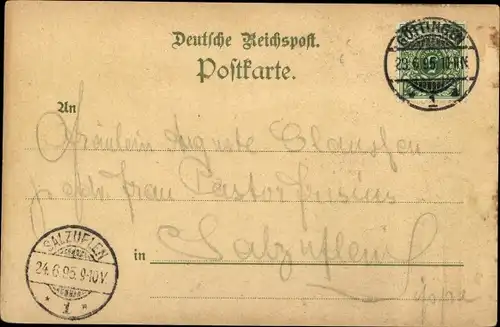 Deutsche Reichspost.
Postkarte.
GÖTTINGEN
23.6.95.10-11N.
1
An
Fräulein Auguste Claussen
Frau Pastor
in Salzuflen
Lippe
SALZUFLEN
24.6.95.9-10V.
* 1 *